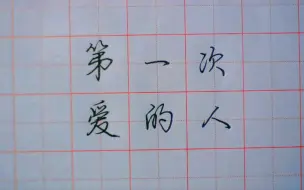 第一次
爱的人